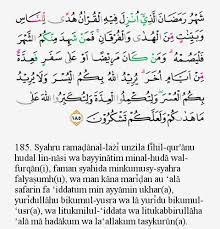 شَهْرُ رَمَضَانَ الَّذِيْٓ اُنْزِلَ فِيْهِ الْقُرْاٰنُ هُدًى لِّلنَّاسِ
وَبَيِّنٰتٍ مِّنَ الْهُدٰى وَالْفُرْقَانِۚ فَمَنْ شَهِدَ مِنْكُمُ الشَّهْرَ
فَلْيَصُمْهُۗ وَمَنْ كَانَ مَرِيْضًا اَوْ عَلٰى سَفَرٍ فَعِدَّةٌ
مِّنْ اَيَّامٍ اُخَرَۗ يُرِيْدُ اللّٰهُ بِكُمُ الْيُسْرَ وَلَا يُرِيْدُ
بِكُمُ الْعُسْرَۖ وَلِتُكْمِلُوا الْعِدَّةَ وَلِتُكَبِّرُوا اللّٰهَ عَلٰى
مَا هَدٰىكُمْ وَلَعَلَّكُمْ تَشْكُرُوْنَ ١٨٥
185. Syahru ramaḍānal-lażī unzila fīhil-qur'ānu
hudal lin-nāsi wa bayyinātim minal-hudā wal-
furqān(i), faman syahida minkumusy-syahra
falyaṣumh(u), wa man kāna marīḍan au ‘alā
safarin fa ‘iddatum min ayyāmin ukhar(a),
yurīdullāhu bikumul-yusra wa lā yurīdu bikumul-
‘usr(a), wa litukmilul-‘iddata wa litukabbirullāha
‘alā mā hadākum wa la‘allakum tasykurūn(a).